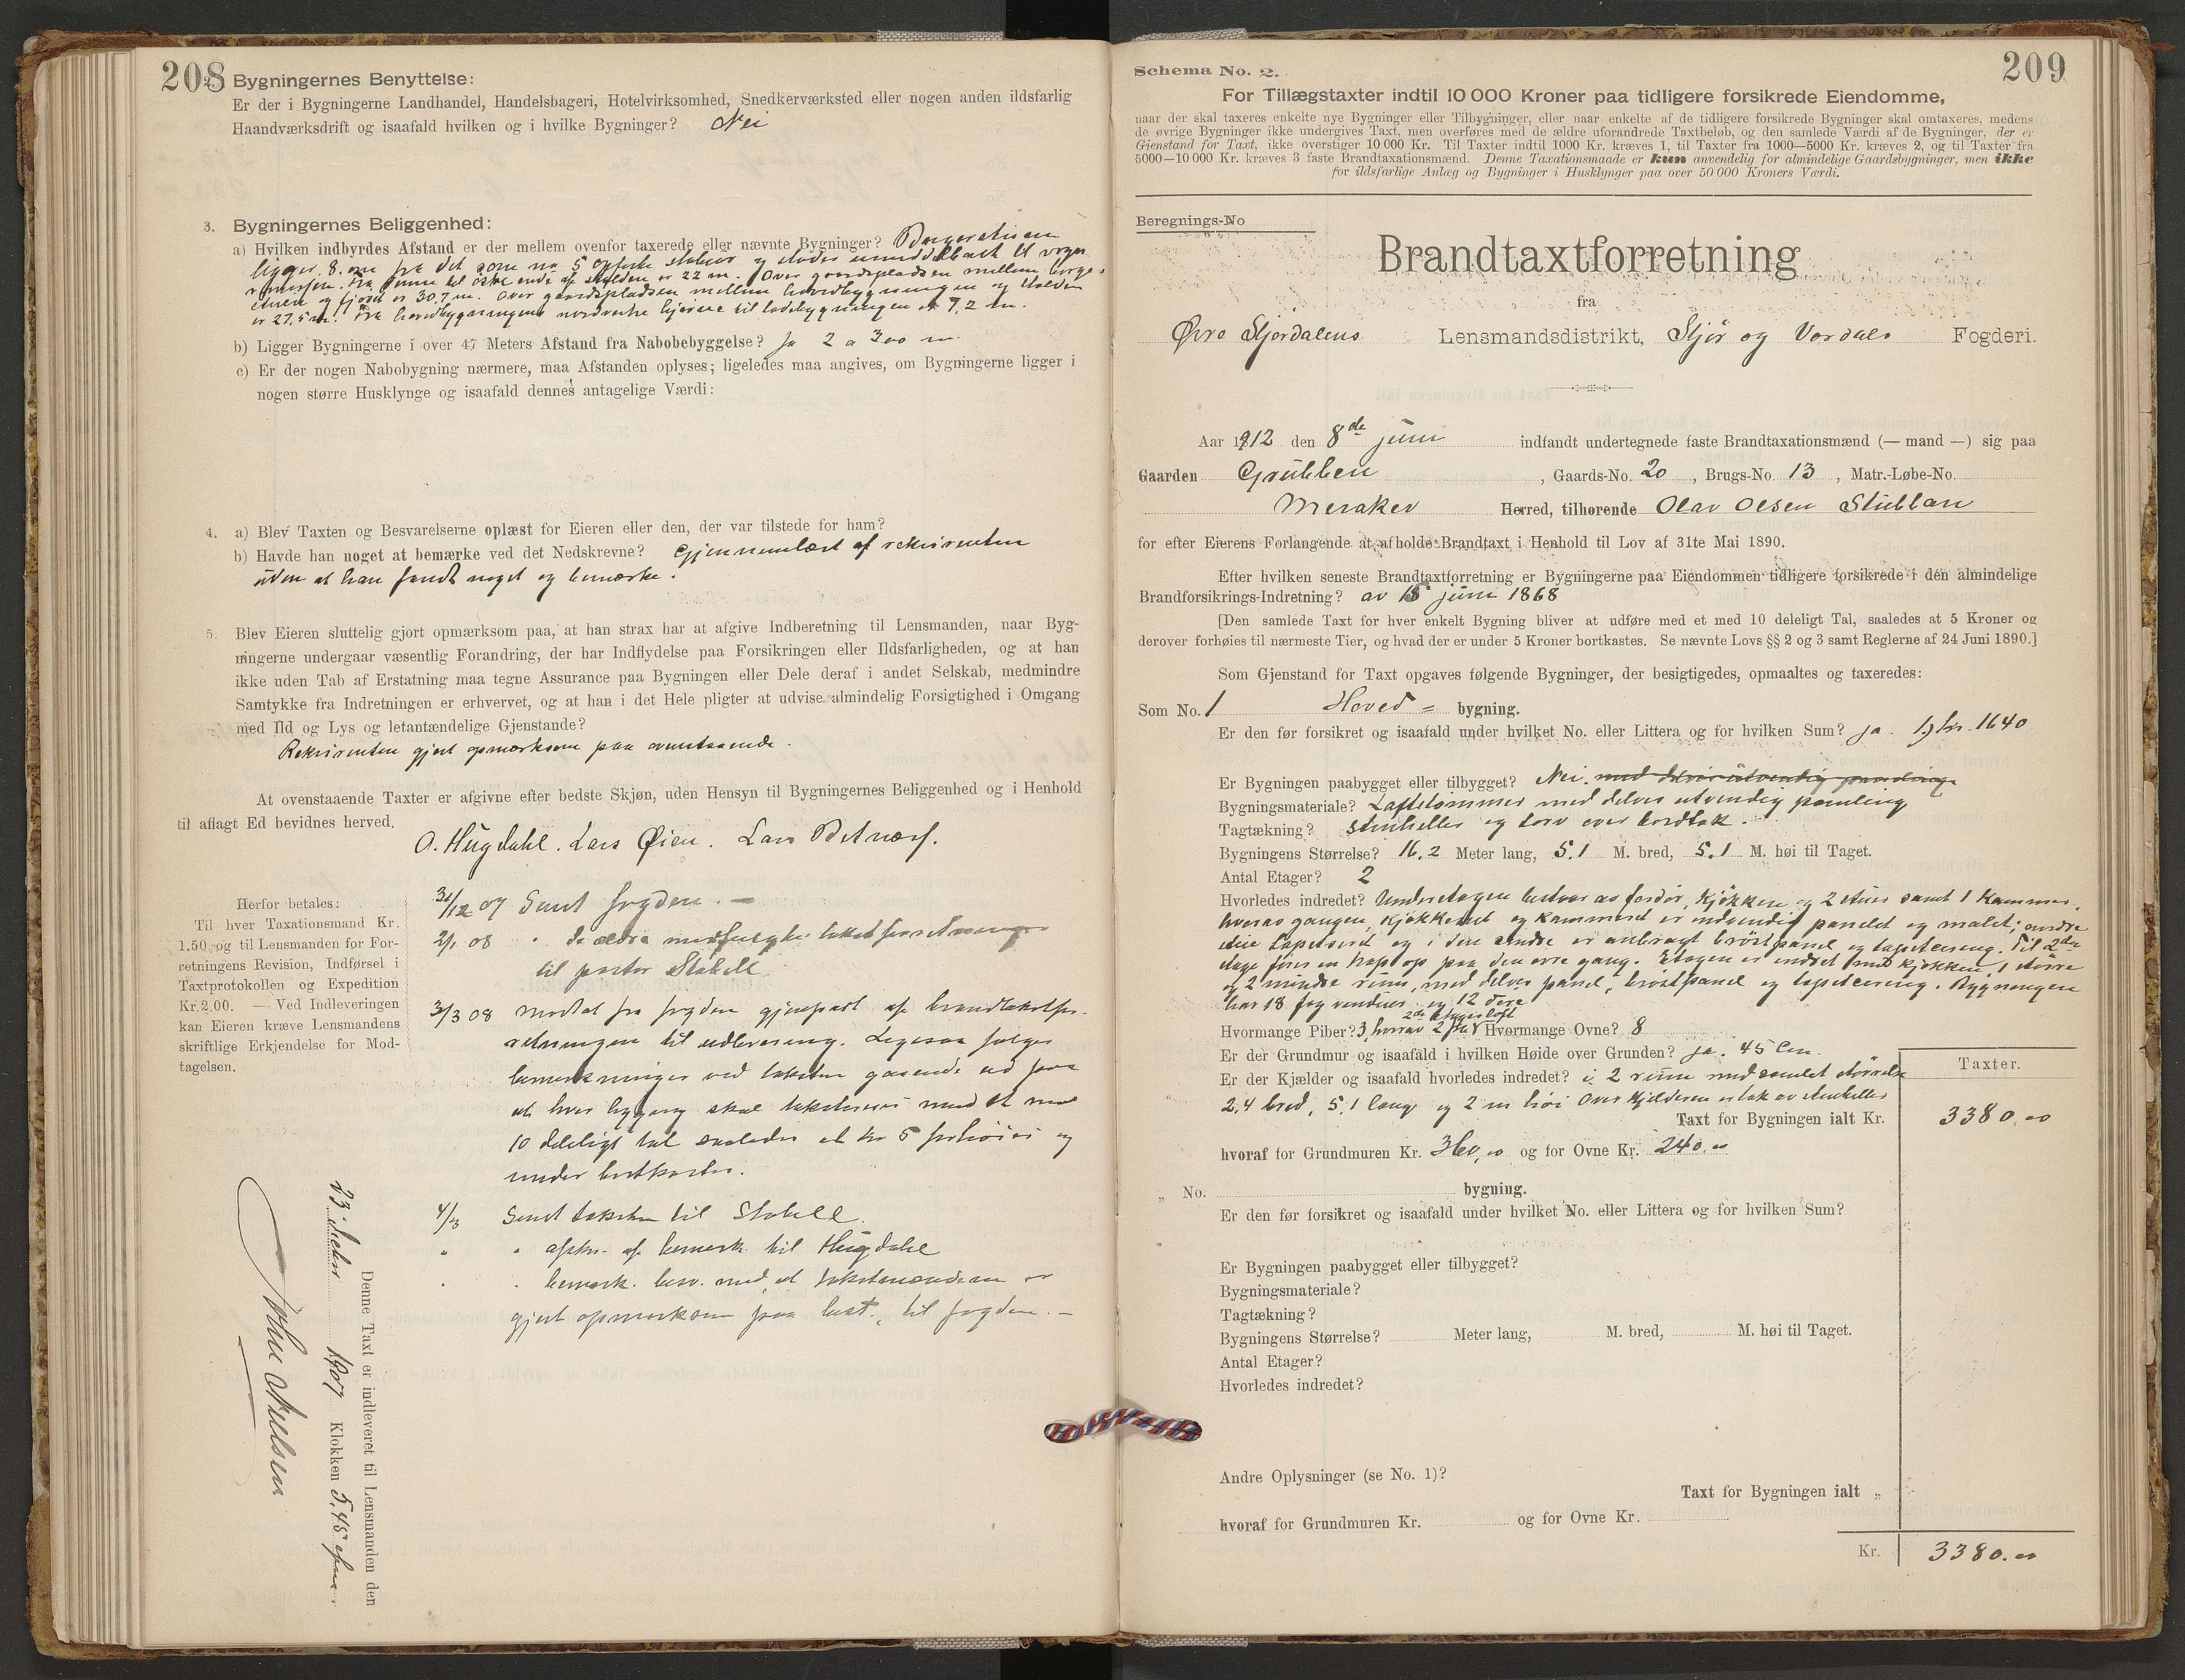 208
Bygningernes Benyttelse:
Er der i Bygningerne Landhandel, Handelsbageri, Hotelvirksomhed, Snedkerværksted eller nogen anden ildsfarlig
Haandværksdrift og isaafald hvilken og i hvilke Bygninger? Nei
3. Bygningernes Beliggenhed:
a) Hvilken indbyrdes Afstand er der mellem ovenfor taxerede eller nævnte Bygninger? Borgerstuen
ligger 8. m fra det som no 5 opførte stabur og støder umiddelbart til vogn
remissen. Fra denne til østre ende af stalden er 22 m. Over gaardspladsen mellem borge-
stuen og fjøset er 30,7 m. Over gaardspladsen mellem hovedbygningen og stalden
er 27,5 m. Fra hovedbygningens nordvestre hjørne til ladebygningen er 7,2 m.
b) Ligger Bygningerne i over 47 Meters Afstand fra Nabobebyggelse? Ja 2 a 300 m.
c) Er der nogen Nabobygning nærmere, maa Afstanden oplyses; ligeledes maa angives, om Bygningerne ligger i
nogen større Husklynge og isaafald dennes antagelige Værdi:
4. a) Blev Taxten og Besvarelserne oplæst for Eieren eller den, der var tilstede for ham?
b) Havde han noget at bemærke ved det Nedskrevne? Gjennemlæst af rekvirenten
uden at han fandt noget og bemærke.
5. Blev Eieren sluttelig gjort opmærksom paa, at han strax har at afgive Indberetning til Lensmanden, naar Byg-
ningerne undergaar væsentlig Forandring, der har Indflydelse paa Forsikringen eller Ildsfarligheden, og at han
ikke uden Tab af Erstatning maa tegne Assurance paa Bygningen eller Dele deraf i andet Selskab, medmindre
Samtykke fra Indretningen er erhvervet, og at han i det Hele pligter at udvise almindelig Forsigtighed i Omgang
med Ild og Lys og letantændelige Gjenstande?
Rekvirenten gjort opmærksom paa ovenstaaende.
At ovenstaaende Taxter er afgivne efter bedste Skjøn, uden Hensyn til Bygningernes Beliggenhed og i Henhold
til aflagt Ed bevidnes herved.
O. Hugdahl. Lars Øien. Lars
Herfor betales:
Til hver Taxationsmand Kr.
1.50 og til Lensmanden for For-
retningens Revision, Indførsel i
Taxtprotokollen og Expedition
Kr. 2.00. — Ved Indleveringen
kan Eieren kræve Lensmandens
skriftlige Erkjendelse for Mod-
tagelsen.
31/12 07 Sendt fogden. —
2/1 08 " de ældre medfulgte takstforretninger
til pastor Stabell
3/3 08 modtat fra fogden gjenpart af brandtakstfor-
retningen til udlevering. Ligesaa følger
bemerkninger ved taksten gaaende ud paa
at hver bygning skal taksteres med et med
10 deleligt tal saaledes at kr 5 forhøies og
under bortkastes.
4/3 Sendt taksten til Stabell.
" " afskr. af bemerk. til Hugdahl
" " bemerk. besv. med, at takstmændene er
gjort opmerksom paa best., til fogden. —
Denne Taxt er indleveret til Lensmanden den
23 decbr 1907 Klokken 5,45 efm.
John Nielsen
Schema No. 2.
209
For Tillægstaxter indtil 10 000 Kroner paa tidligere forsikrede Eiendomme,
naar der skal taxeres enkelte nye Bygninger eller Tilbygninger, eller naar enkelte af de tidligere forsikrede Bygninger skal omtaxeres, medens
de øvrige Bygninger ikke undergives Taxt, men overføres med de ældre uforandrede Taxtbeløb, og den samlede Værdi af de Bygninger, der er
Gjenstand for Taxt, ikke overstiger 10 000 Kr. Til Taxter indtil 1000 Kr. kræves 1, til Taxter fra 1000—5000 Kr. kræves 2, og til Taxter fra
5000—10 000 Kr. kræves 3 faste Brandtaxationsmænd. Denne Taxationsmaade er kun anvendelig for almindelige Gaardsbygninger, men ikke
for ildsfarlige Anlæg og Bygninger i Husklynger paa over 50 000 Kroners Værdi.
Beregnings-No
Brandtaxtforretning
fra
Øvre Stjørdalens Lensmandsdistrikt, Stjør og Værdals Fogderi.
Aar 1912 den 8de juni indfandt undertegnede faste Brandtaxationsmænd (— mand —) sig paa
Gaarden Grubben, Gaards-No. 20, Brugs-No. 13, Matr.-Løbe-No.
Meraker Herred, tilhørende Olav Olsen Stubban
for efter Eierens Forlangende at afholde Brandtaxt i Henhold til Lov af 31te Mai 1890.
Efter hvilken seneste Brandtaxtforretning er Bygningerne paa Eiendommen tidligere forsikrede i den almindelige
Brandforsikrings-Indretning? av 15 juni 1868
[Den samlede Taxt for hver enkelt Bygning bliver at udføre med et med 10 deleligt Tal, saaledes at 5 Kroner og
derover forhøies til nærmeste Tier, og hvad der er under 5 Kroner bortkastes. Se nævnte Lovs §§ 2 og 3 samt Reglerne af 24 Juni 1890.]
Som Gjenstand for Taxt opgaves følgende Bygninger, der besigtigedes, opmaaltes og taxeredes:
Som No. 1 Hoved= bygning.
Er den før forsikret og isaafald under hvilket No. eller Littera og for hvilken Sum? ja. 1) kr. 1640
Er Bygningen paabygget eller tilbygget? Nei. med delvis utvendig paneling
Bygningsmateriale? Laftetømmer med delvis utvendig paneling
Tagtækning? stenheller og torv over bordtak.
Bygningens Størrelse? 16.2 Meter lang, 5.1 M. bred, 5.1 M. høi til Taget.
Antal Etager? 2
Hvorledes indredet? Underetagen bestaar av fordør, kjøkken og 2 stuer samt 1 kammer.
hvorav gangen, kjøkkenet og kammeret er indvendig panelet og malet; ene
stue tapetseret og i den andre er anbragt brøstpanel og tapetsering. Til 2den
etage fører en trap op paa den øvre gang. Etagen er indret med kjøkken, 1 større
og 2 mindre rum, med delvis panel, brøstpanel og tapetsering. Bygningen
har 18 fag vinduer og 12 døre
Hvormange Piber? 3, hvorav 2 fra 2de etages loft Hvormange Ovne? 8
Er der Grundmur og isaafald i hvilken Høide over Grunden? ja. 45 Cm.
Er der Kjælder og isaafald hvorledes indredet? i 2 rum med samlet størrelse
2,4 bred, 5,1 lang og 2 m høi Over kjelderen er tak av stenheller
Taxter.
Taxt for Bygningen ialt Kr. 3380.00
hvoraf for Grundmuren Kr. 360,00 og for Ovne Kr. 240.00
" No. bygning.
Er den før forsikret og isaafald under hvilket No. eller Littera og for hvilken Sum?
Er Bygningen paabygget eller tilbygget?
Bygningsmateriale?
Tagtækning?
Bygningens Størrelse? Meter lang, M. bred, M. høi til Taget.
Antal Etager?
Hvorledes indredet?
Andre Oplysninger (se No. 1)?
Taxt for Bygningen ialt "
hvoraf for Grundmuren Kr. og for Ovne Kr.
Kr. 3380.00